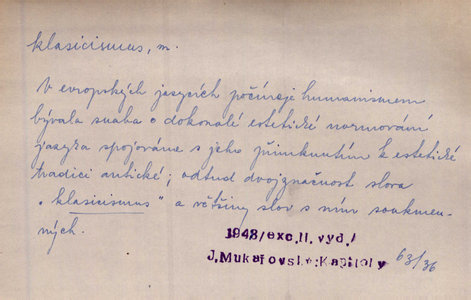 klasicismus, m.
V evropských jazycích počínaje humanismem
bývala snaha o dokonalé estetické normování
jazyka spojována s jeho přimknutím k estetické
tradici antické; odtud dvojznačnost slova
"klasicismus" a většiny slov s ním soukmen-
ných.
1948/exc.II.vyd./
J.Mukařovský:Kapitoly
63/36